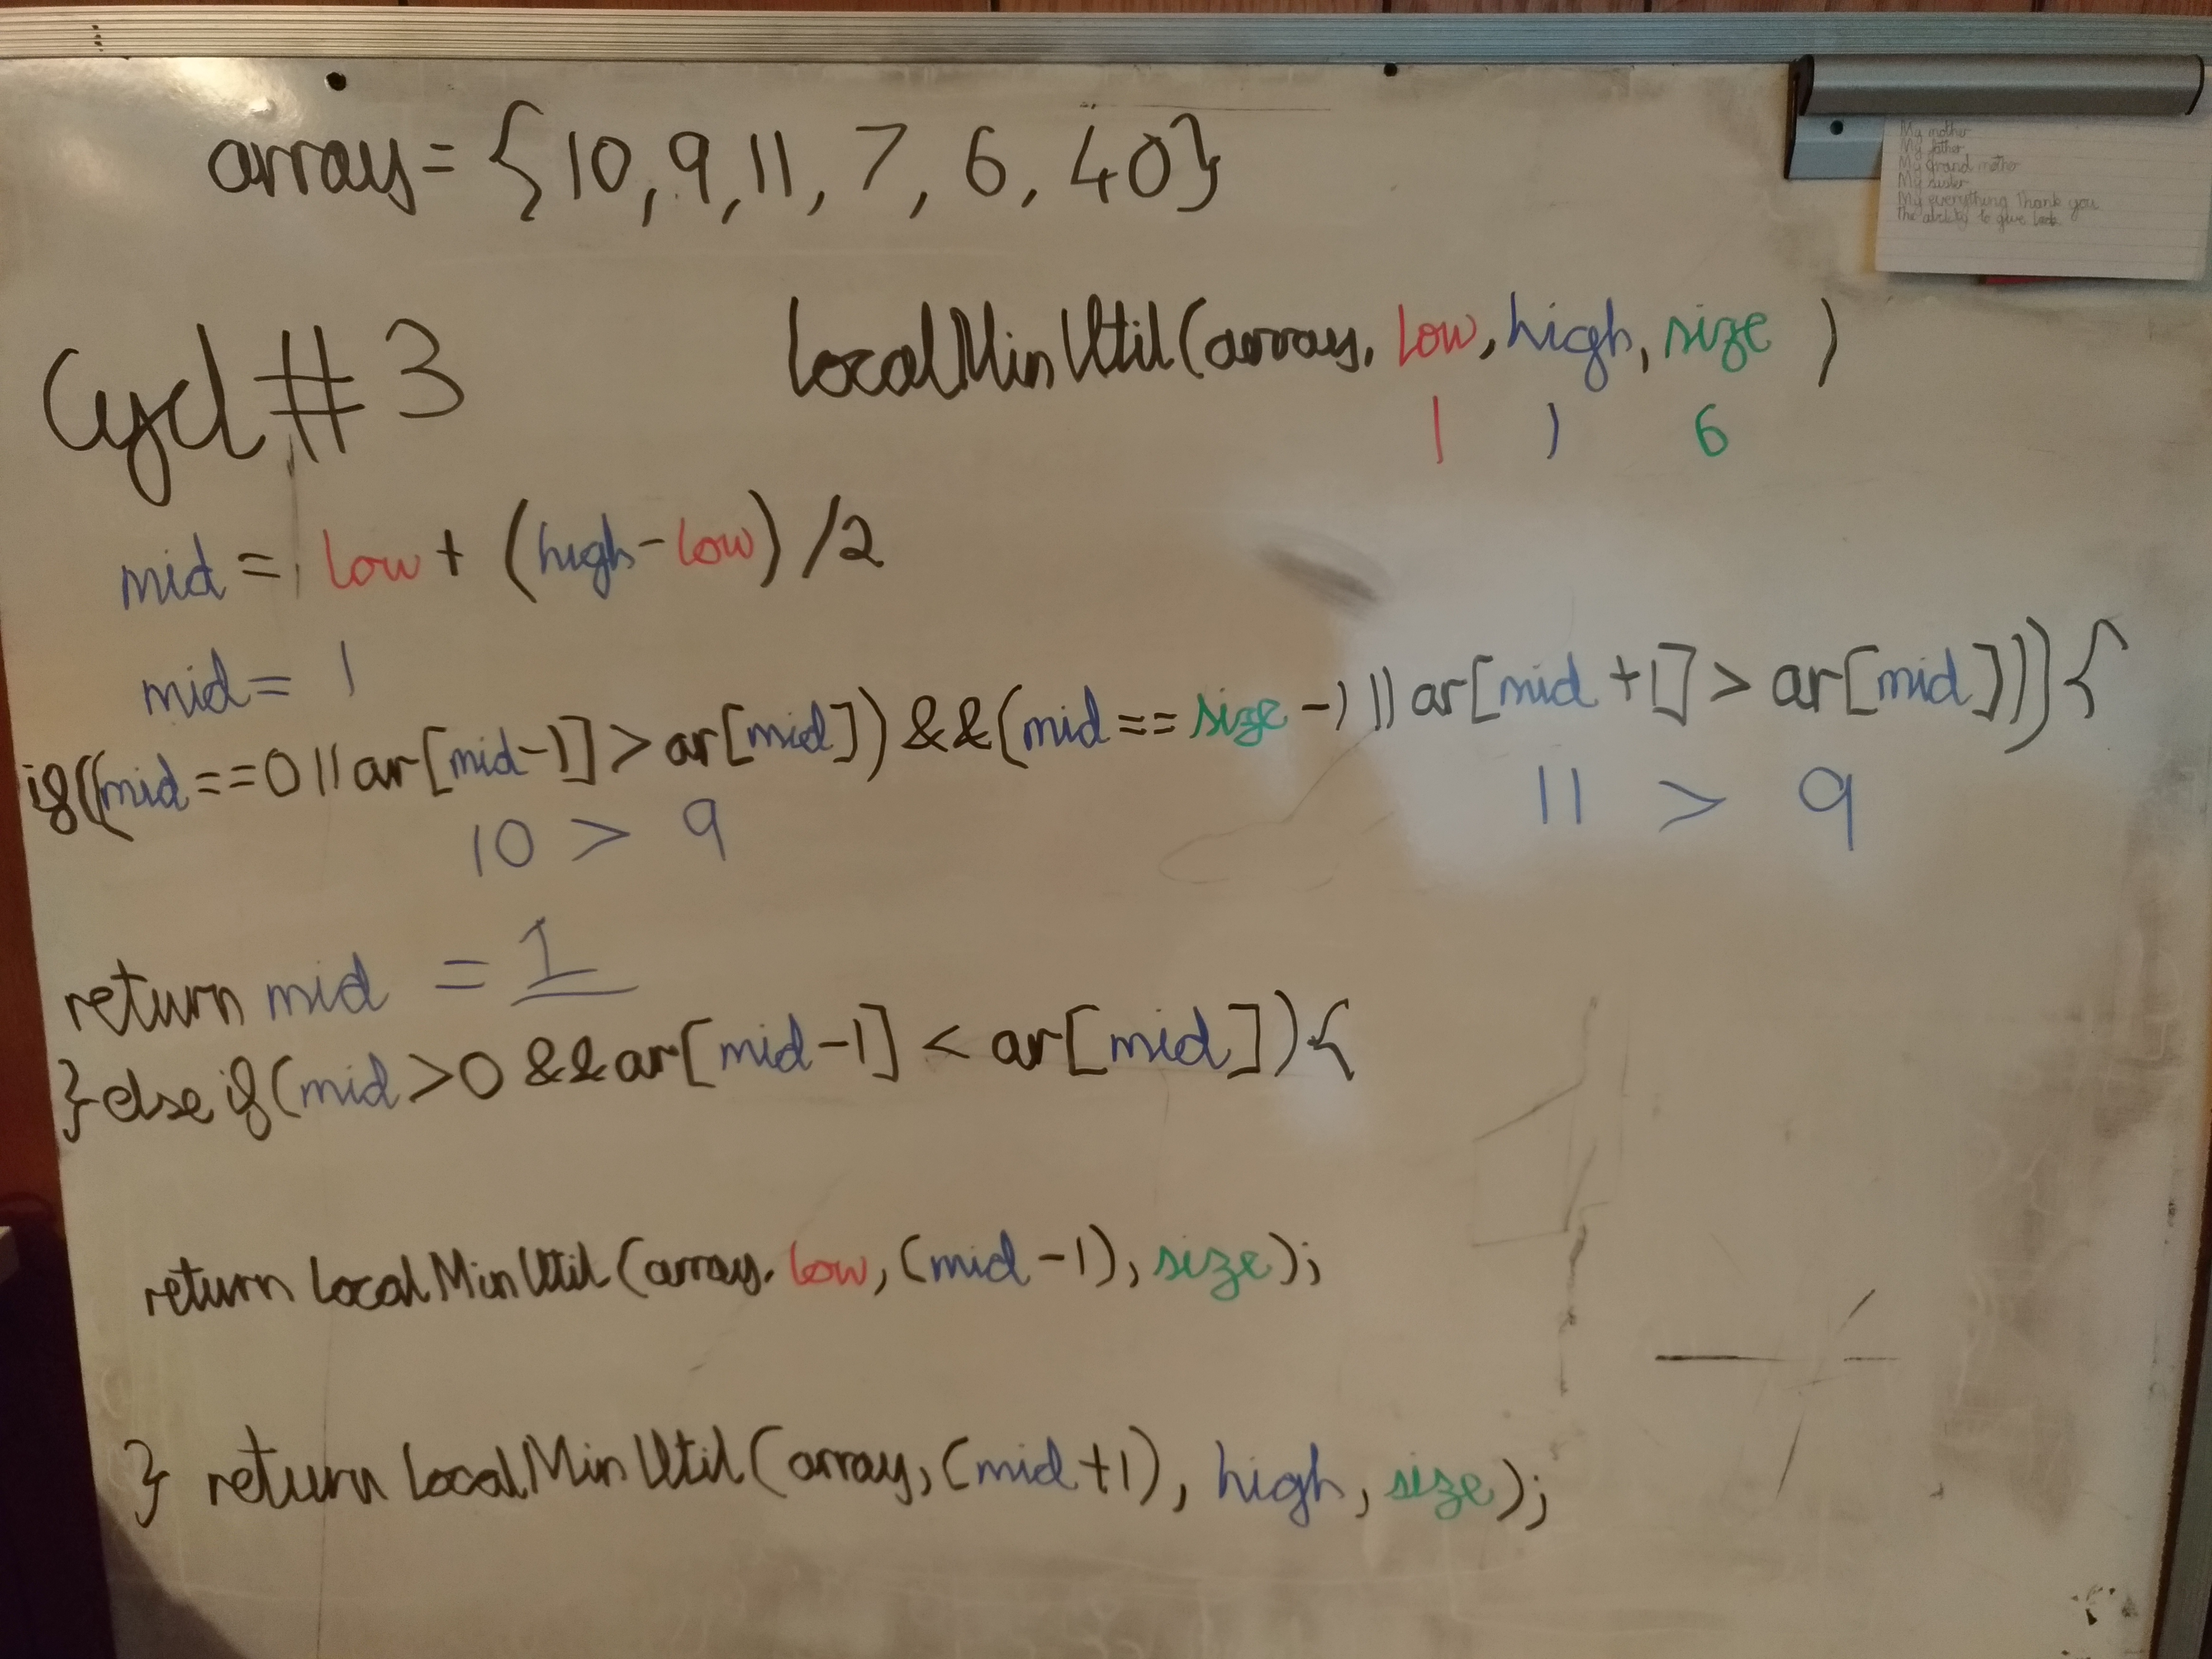 array = {10, 9, 11, 7, 6, 40}
My mother
My father
My grand mother
My sister
My everything thank you
The ability to give back
Cycl # 3
LocalMinUtil(array, low, high, size )
1 1 6
mid = low + (high - low) /2
mid = 1
if((mid == 0 || ar[mid-1] > ar[mid]) && (mid == size -1 || ar[mid +1] > ar[mid])){
10 > 9
11 > 9
return mid = 1
} else if(mid > 0 && ar[mid-1] < ar[mid]){
return LocalMinUtil(array, low, (mid -1), size);
} return LocalMinUtil(array, (mid+1), high, size);